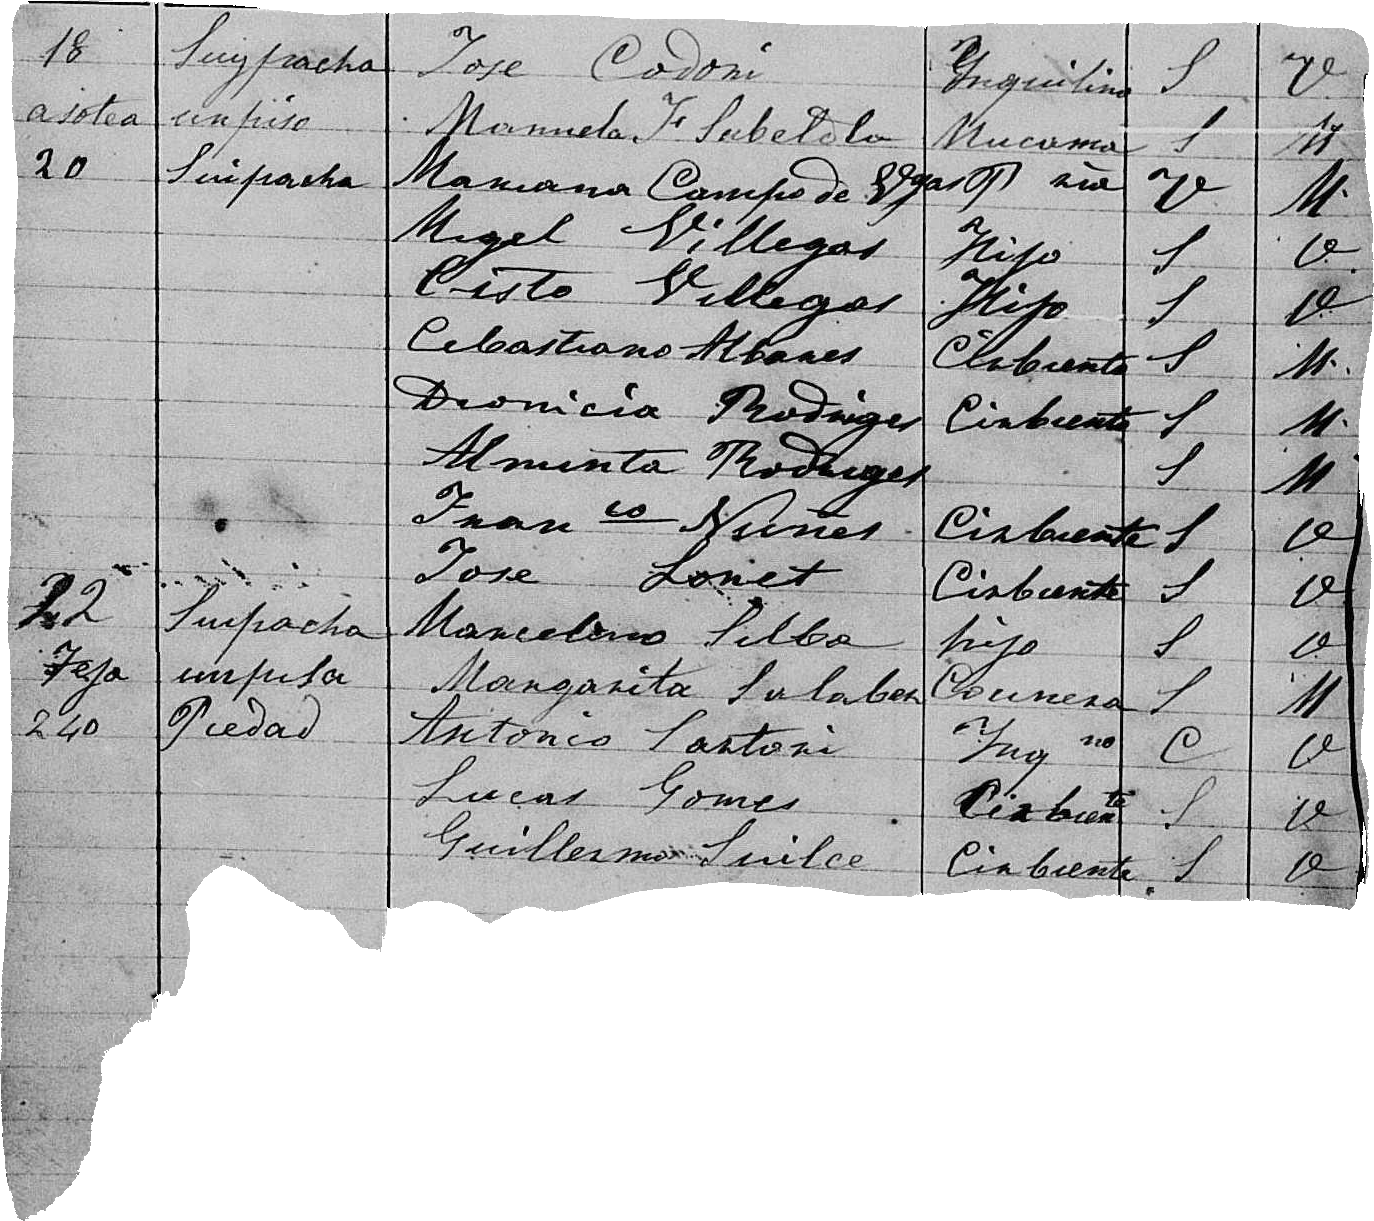 18 Suypacha Jose Codoni Ynquilino S V
asotea un piso Manuela F Sabelola Mucama S M
20 Suipacha Mariana Campo de Vgas P ria V M
Migel Villegas Hijo S V
Cisto Villegas Hijo S V
Cebastiano Albares Cirbiente S M
Dionicia Rodriges Cirbiente S M
Alminta Rodriges S M
Fran co Nuñes Cirbiente S V
Jose Lonet Cirbiente S V
22 Suipacha Marcelino Silba hijo S V
Teja un pisa Margarita Salaber Cocinera S M
240 Piedad Antonio Santoni Ynq no C V
Lucas Gomes Cirbiente S V
Guillermo Suilce Cirbiente S V